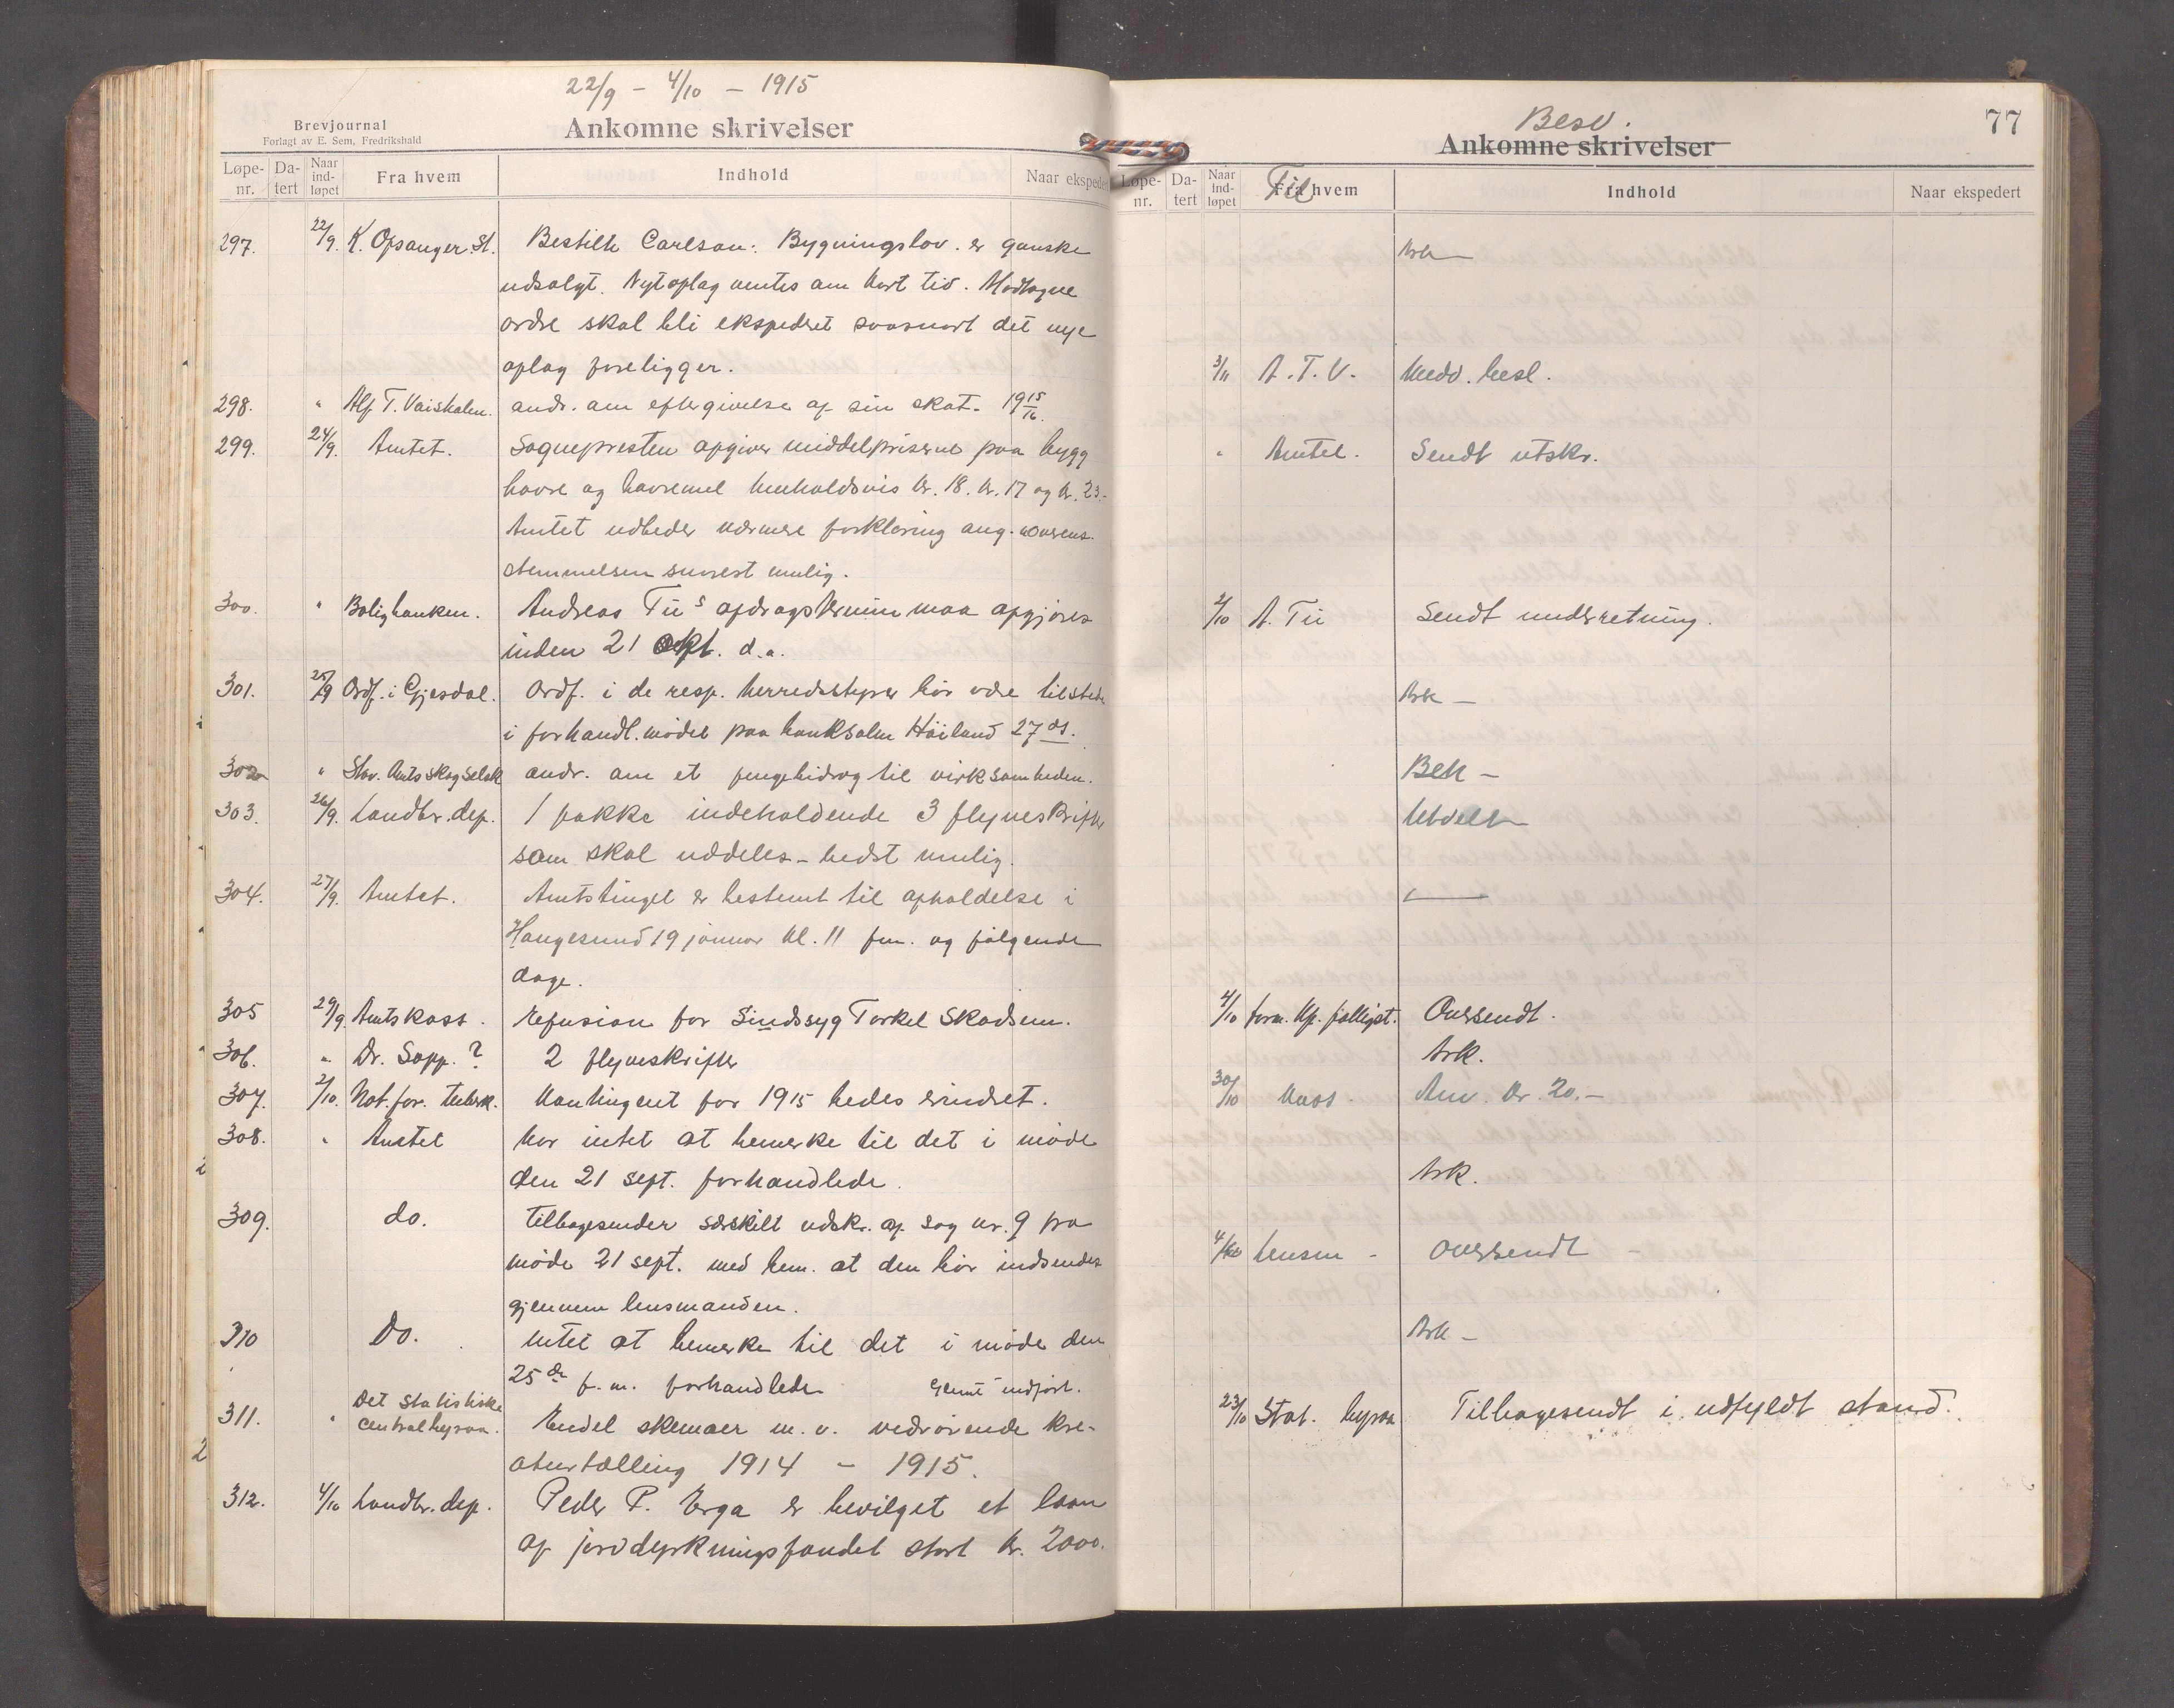 22/9 - 4/10 - 1915
Brevjournal
Forlagt av E. Sem, Fredrikshald
Ankomne skrivelser
Løpe-nr. Da-tert Naar ind-løpet Fra hvem Indhold Naar ekspeder
297. 22/9. K. Opsanger. St. Bestilte Carlson: Bygningslov. er ganske
udsolgt. Nyt oplag ventes om kort tid. Modtagne
ordre skal bli ekspederet saasnart det nye
oplag foreligger.
298. " Alf T. andr. om eftergivelse af sin skat. 1915/16.
299. 24/9. Amtet. Sognepresten opgiver middelpriserne paa bygg
havre og havremel henholdsvis kr. 18. kr. 17 og kr. 23.-
Amtet udbeder nærmere forklaring ang. uoverens-
stemmelsen snarest mulig.
300. " Boligbanken. Andreas Tu s afdragstermin maa opgjøres
inden 21 okt. d.a.
301. 25/9 Ordf. i Gjesdal. Ordf. i de resp. herredsstyrer bør være tilstede
i forhandl. mødet paa banksalen Høiland 27 ds.
302 " Stav. Amts skogselsk andr. om et pengebidrag til virksomheden.
303. 26/9. Landbr. dep. 1 pakke indeholdende 3 flyveskrifter
som skal uddeles - bedst mulig.
304. 27/9. Amtet. Amtstinget er bestemt til afholdelse i
Haugesund 19 januar kl. 11 fm. og følgende
dage.
305 29/9. Amtskass. Refusion for Sindssyg Torkel Skadsem.
306. " Dr. Sopp. ? 2 flyveskrifter
307. 2/10. Nat. for. tuberk. Kontingent for 1915 bedes erindret.
308. " Amtet har intet at bemerke til det i møde
den 21 sept. forhandlede.
309. do. tilbagesender særskilt udskr. af sag nr. 9 fra
møde 21 sept. med bem. at den bør indsendes
gjennem lensmanden.
310 Do. intet at bemerke til det i møde den
25 de f.m. forhandlede indført.
311. " Det Statistiske
Centralbyraa. Endel skemaer m. v. vedrørende kre-
aturtælling 1914 - 1915.
312. 4/10 Landbr. dep. Peder P. Erga er bevilget et laan
af jorddyrkningsfondet stort kr. 2000.
77
Besv.
Ankomne skrivelser
Løpe-nr. Da-tert Naar ind-løpet Fra hvem Til Indhold Naar ekspedert
Ark -
3/11 A. T. V. Medd. besl.
" Amtet. Sendt utskr.
2/10 A. Tu Sendt underretning.
Ark -
Bek -
Utdelt
4/10 form. Oversendt.
Ark.
30/10 Kass. Anv. kr. 20.-
Ark.
4/10 Lensm - Oversendt -
Ark -
23/10 Stat. byraa Tilbagesendt i udfyldt stand.